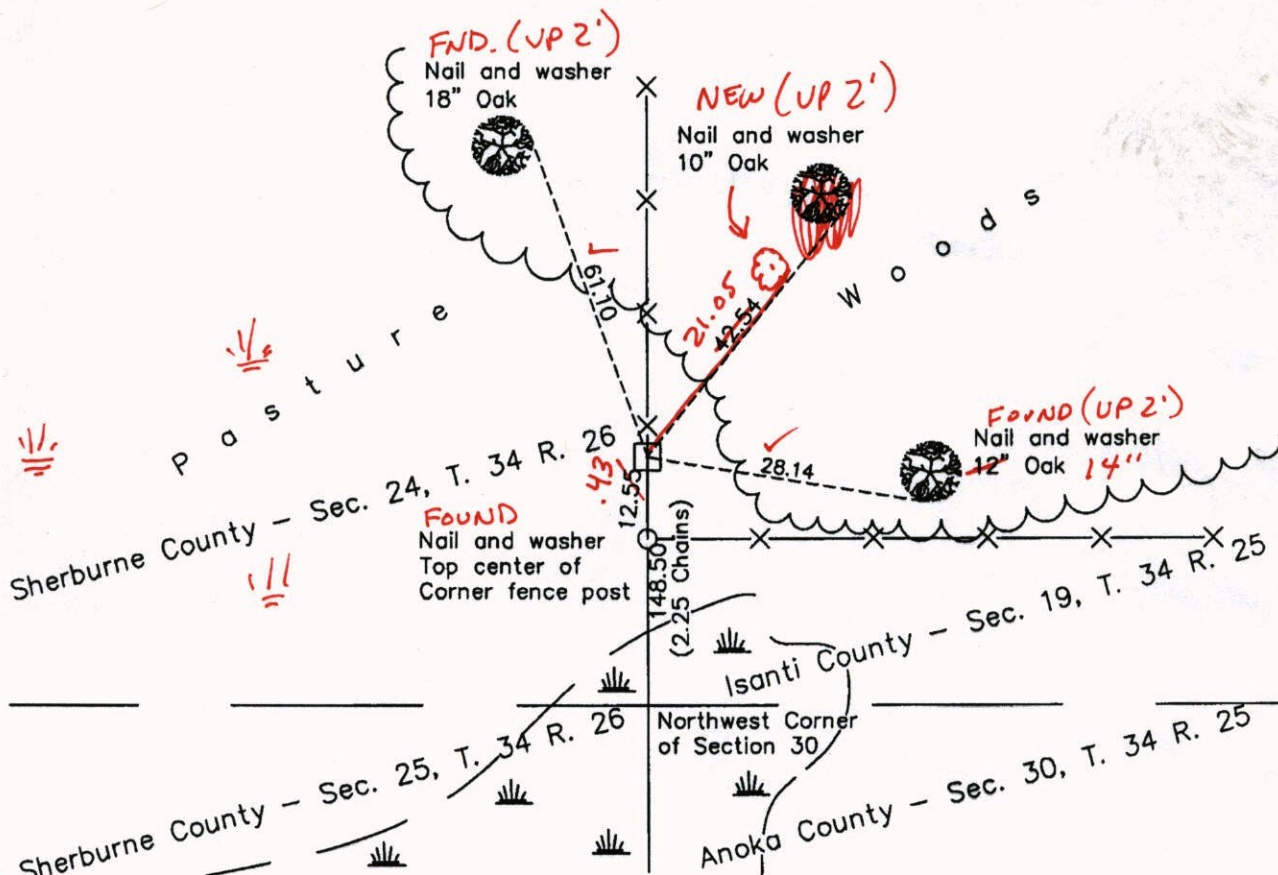 FND. (UP 2')
Nail and washer
18" Oak
NEW (UP 2')
Nail and washer
10" Oak
61.10
21.05
42.54
Woods
Pasture
FOUND (UP 2')
Nail and washer
12" Oak 14"
28.14
Sherburne County - Sec. 24, T. 34 R. 26
.43
12.55
FOUND
Nail and washer
Top center of
Corner fence post
148.50
(2.25 Chains)
Isanti County - Sec. 19, T. 34 R. 25
Northwest Corner
of Section 30
Sherburne County - Sec. 25, T. 34 R. 26
Anoka County - Sec. 30, T. 34 R. 25